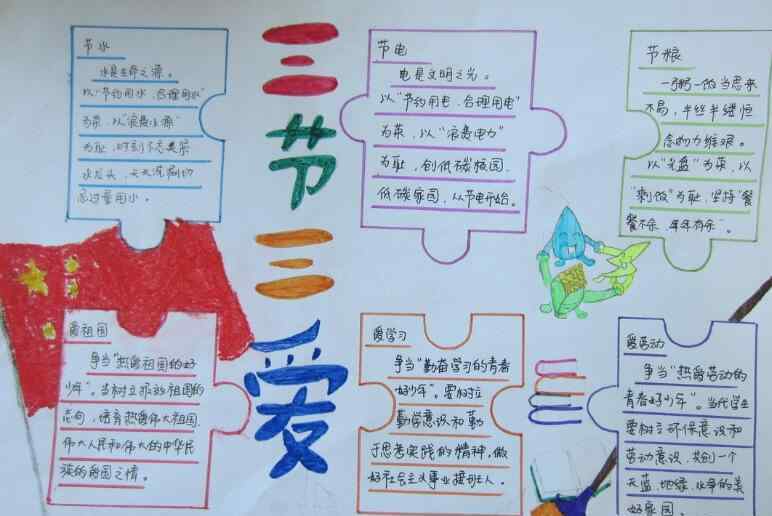 节水
水是生命之源。
以"节约用水,合理用水"
为荣,以"浪费水源"
为耻,时刻不忘关紧
水龙头,
用水。
三节三爱
节电
电是文明之光。
以"节约用电,合理用电"
为荣,以"浪费电力"
为耻,创低碳校园,
低碳家园,从节电开始。
节粮
一粥一饭当思来
不易,半丝半缕恒
念物力维艰。
以"光盘"为荣,以
"剩饭"为耻,坚持"餐
餐不余,年年有余"。
爱祖国
争当"热爱祖国的好
少年"。当树立报效祖国的
志向,培育热爱伟大祖国
伟大人民和伟大的中华民
族的爱国之情。
爱学习
争当"勤奋学习的青春
好少年"。要树立
勤学意识和勤
于思考实践的精神,做
好社会主义事业接班人。
爱劳动
争当"热爱劳动的
青春好少年"。当代学生
要树立环保意识和
劳动意识,共创一个
天蓝、地绿、水净的美
好家园。